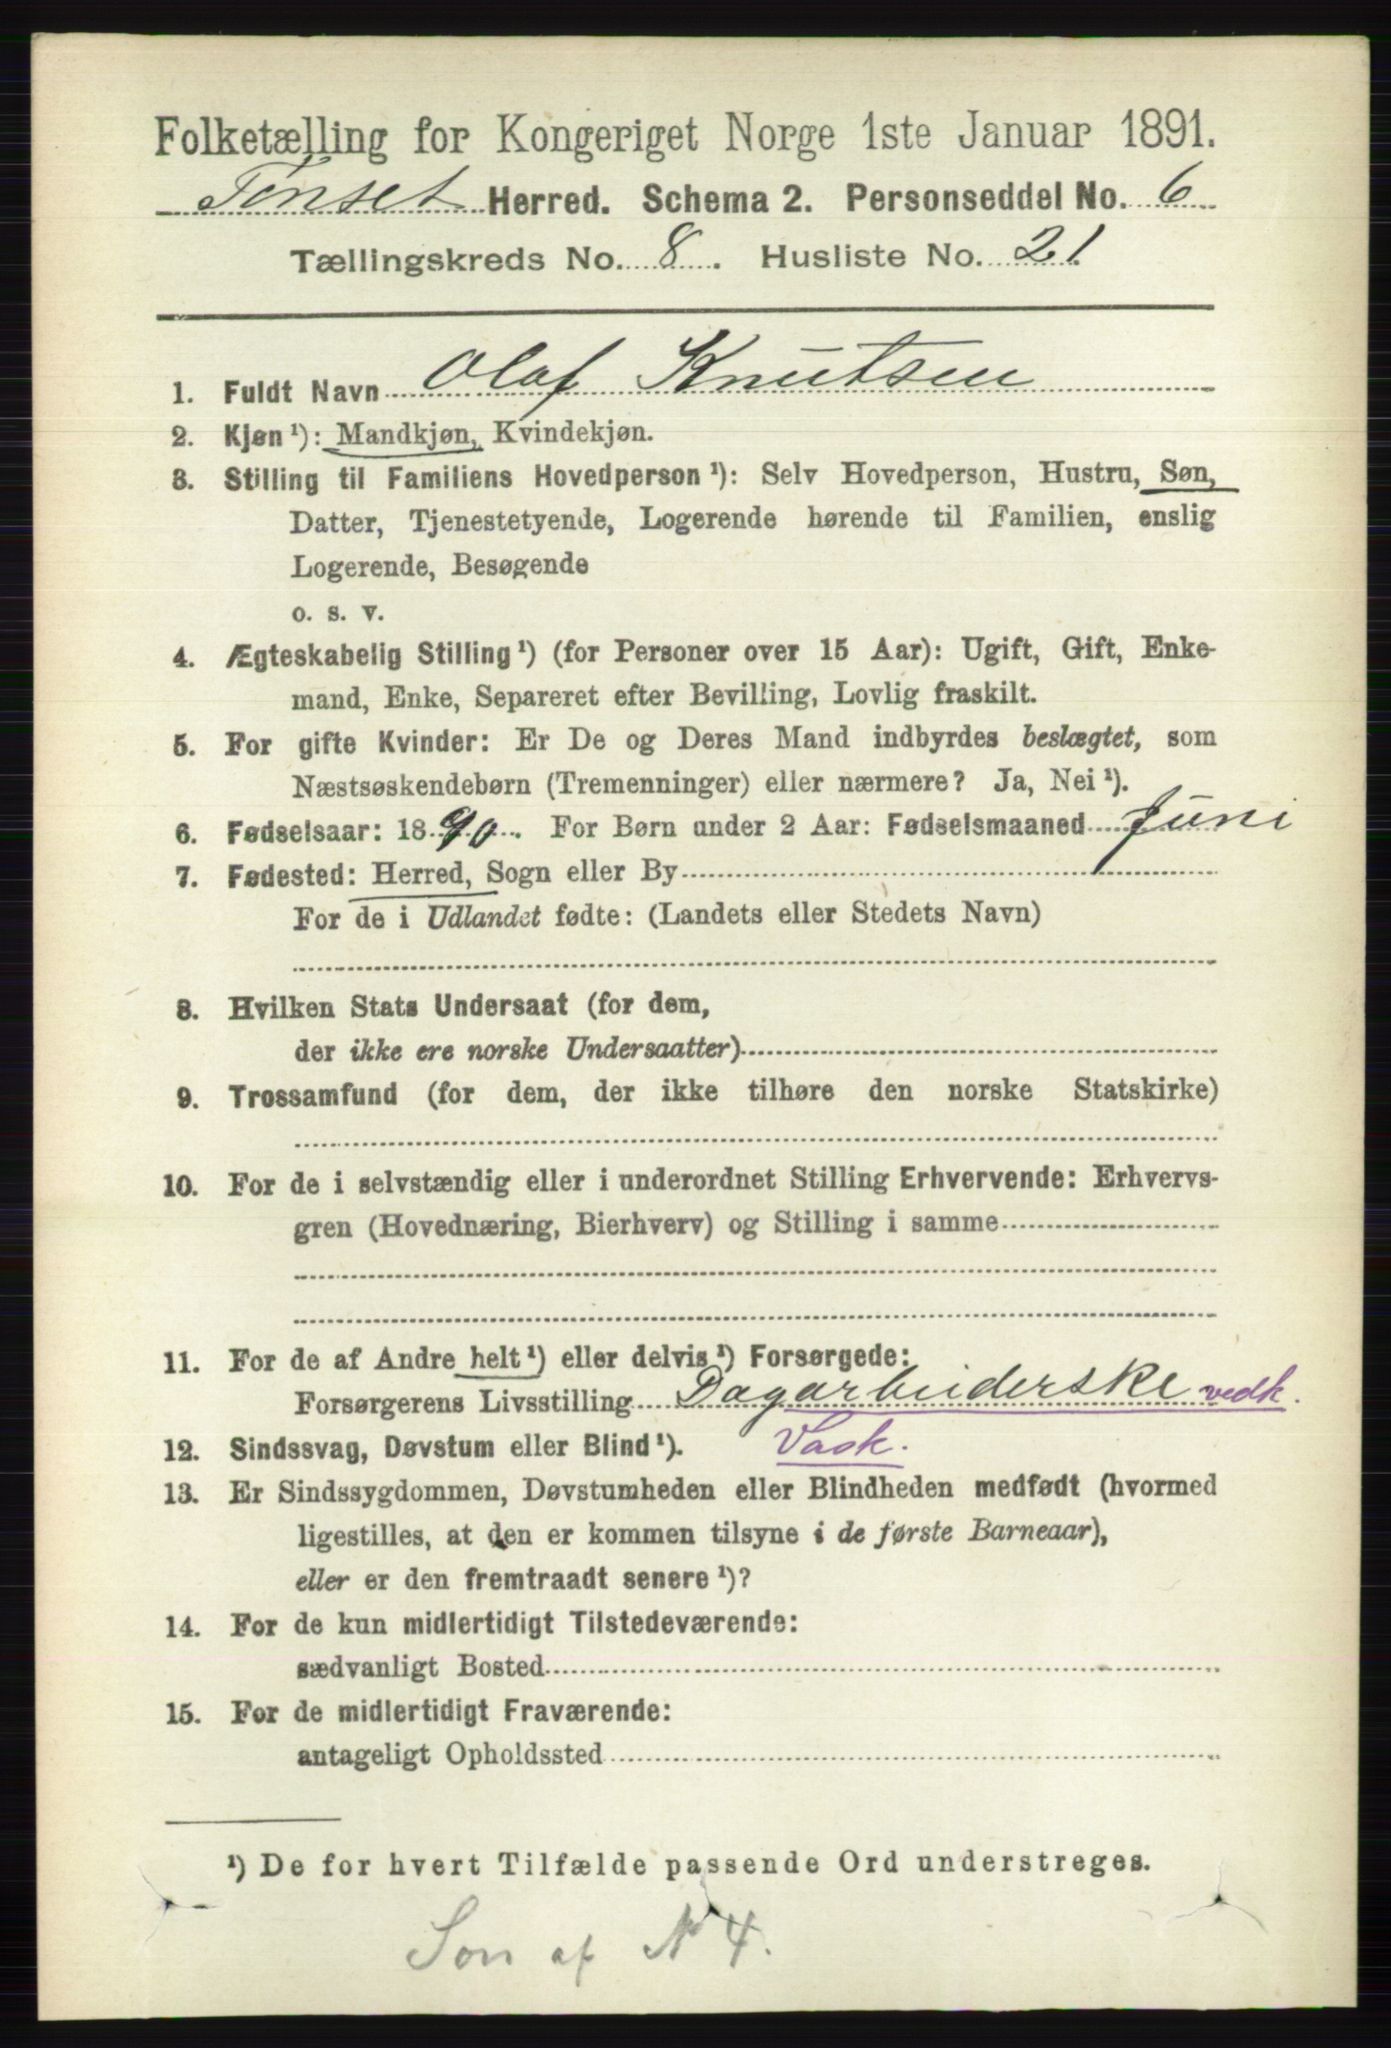 Folketælling for Kongeriget Norge 1ste Januar 1891.
Tønset Herred. Schema 2. Personseddel No. 6
Tællingskreds No. 8. Husliste No. 21
1. Fuldt Navn Olaf Knutsen
2. Kjøn ¹): Mandkjøn, Kvindekjøn.
3. Stilling til Familiens Hovedperson ¹): Selv Hovedperson, Hustru, Søn,
Datter, Tjenestetyende, Logerende hørende til Familien, enslig
Logerende, Besøgende
o. s. v.
4. Ægteskabelig Stilling ¹) (for Personer over 15 Aar): Ugift, Gift, Enke-
mand, Enke, Separeret efter Bevilling, Lovlig fraskilt.
5. For gifte Kvinder: Er De og Deres Mand indbyrdes beslægtet, som
Næstsøskendebørn (Tremenninger) eller nærmere? Ja, Nei ¹).
6. Fødselsaar: 1890. For Børn under 2 Aar: Fødselsmaaned Juni
7. Fødested: Herred, Sogn eller By
For de i Udlandet fødte: (Landets eller Stedets Navn)
8. Hvilken Stats Undersaat (for dem,
der ikke ere norske Undersaatter)
9. Trossamfund (for dem, der ikke tilhøre den norske Statskirke)
10. For de i selvstændig eller i underordnet Stilling Erhvervende: Erhvervs-
gren (Hovednæring, Bierhverv) og Stilling i samme
11. For de af Andre helt ¹) eller delvis ¹) Forsørgede:
Forsørgerens Livsstilling Dagarbeiderske vedk.
12. Sindssvag, Døvstum eller Blind ¹). Vask.
13. Er Sindssygdommen, Døvstumheden eller Blindheden medfødt (hvormed
ligestilles, at den er kommen tilsyne i de første Barneaar),
eller er den fremtraadt senere ¹)?
14. For de kun midlertidigt Tilstedeværende:
sædvanligt Bosted
15. For de midlertidigt Fraværende:
antageligt Opholdssted
¹) De for hvert Tilfælde passende Ord understreges.
Søn af N 4.